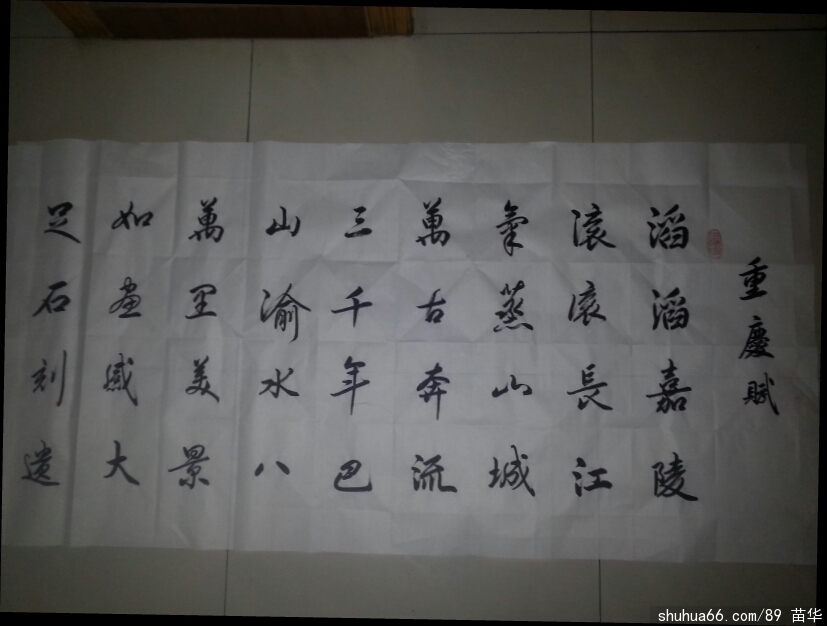 重慶賦
滔滔嘉陵
滾滾長江
氣蒸山城
萬古奔流
三千年巴
山渝水八
萬里美景
如畫感大
足石刻遗
shuhua66.com/89 苗华